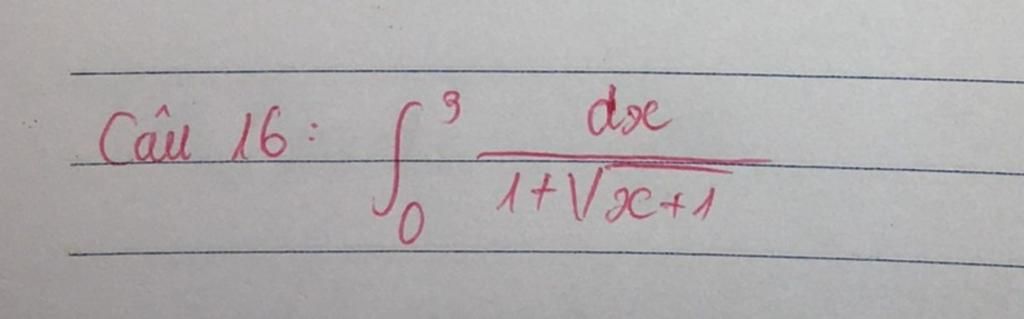 Câu 16: ∫₀⁹ dx / (1+√(x+1))